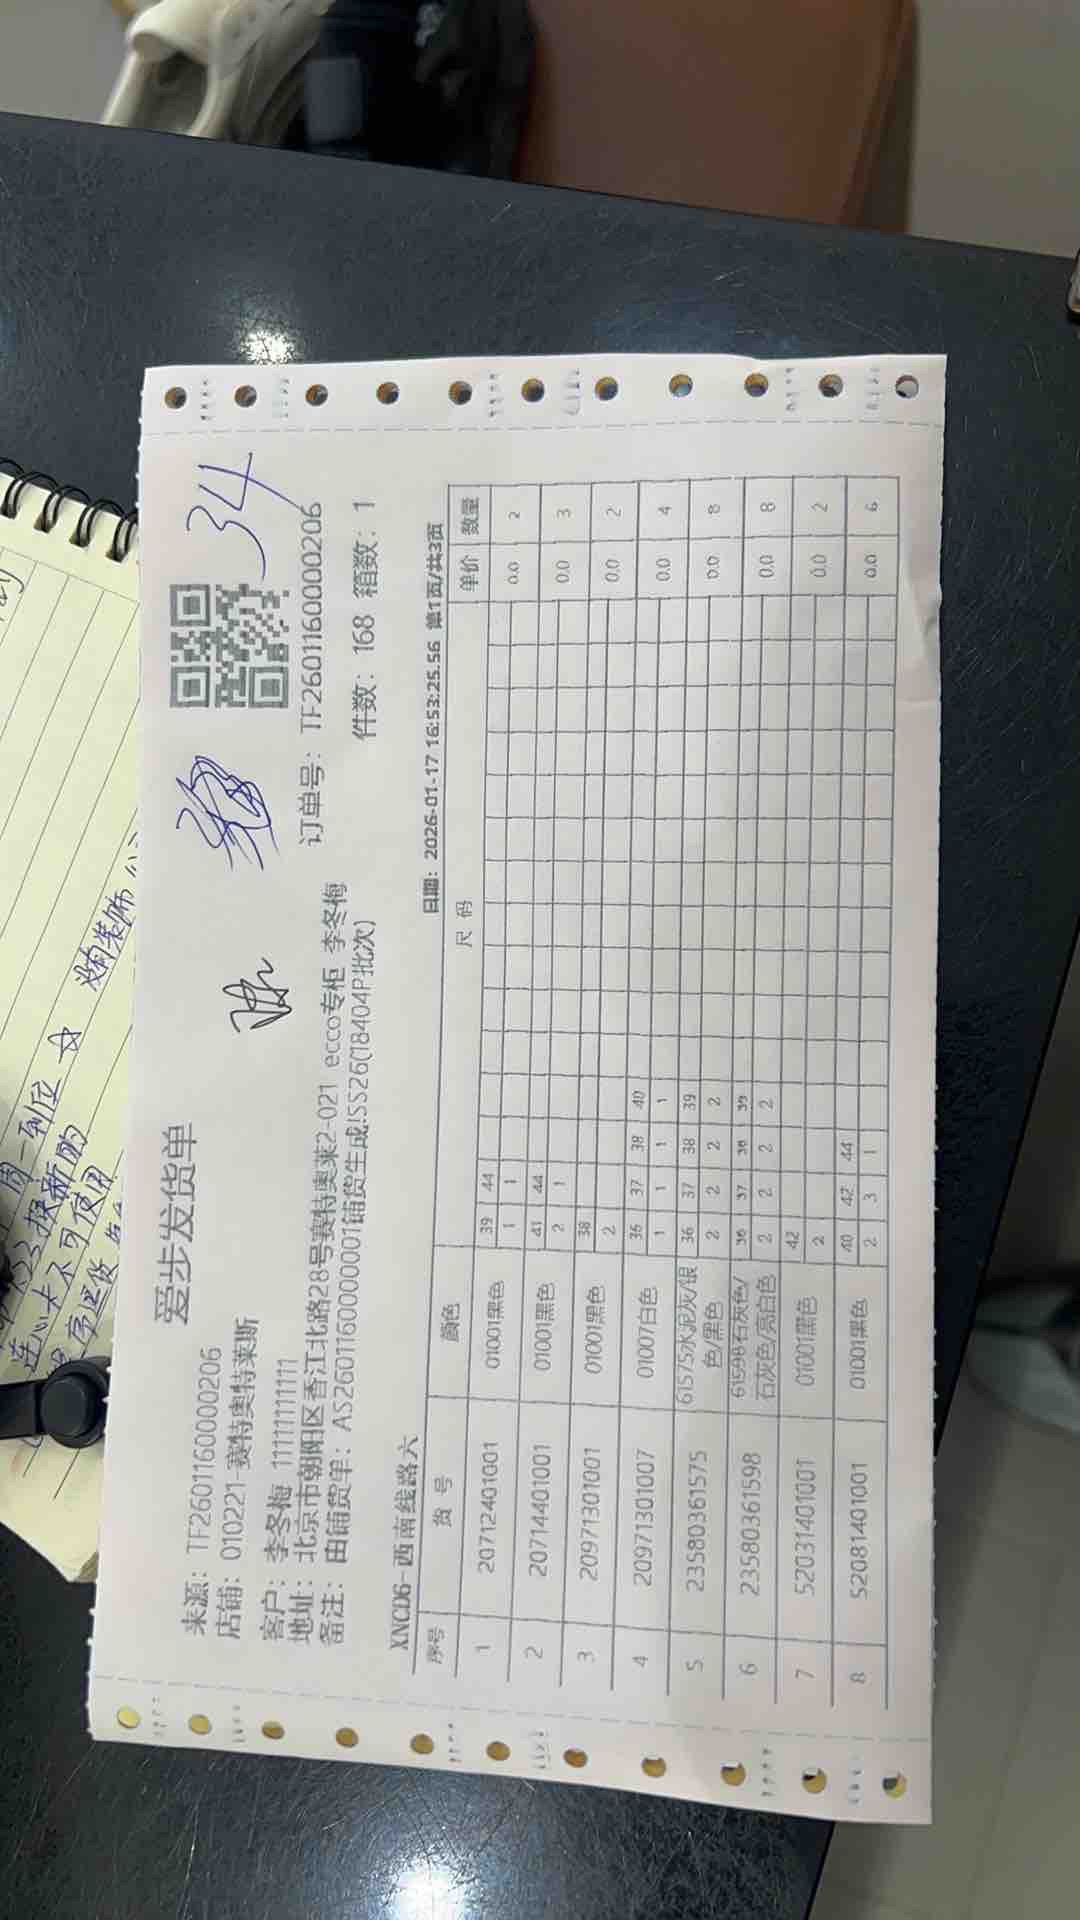 爱步发货单
34
来源: TF260116000206
店铺: 010221-赛特奥特莱斯
客户: 李冬梅 11111111111
订单号: TF260116000206
地址: 北京市朝阳区香江北路28号赛特奥莱2-021 ecco专柜 李冬梅
备注: 由铺货单: AS260116000001铺货生成!SS26(18404P批次)
件数: 168 箱数: 1
XNCD6-西南线路六
日期: 2026-01-17 16:53:25.56 第1页/共3页
序号 货号 颜色 尺码 单价 数量
39 44
1 20712401001 01001黑色 1 1 0.0 2
41 44
2 20714401001 01001黑色 2 1 0.0 3
38
3 20971301001 01001黑色 2 0.0 2
36 37 38 40
4 20971301007 01007白色 1 1 1 1 0.0 4
61575水泥灰/银 36 37 38 39
5 23580361575 色/黑色 2 2 2 2 0.0 8
61598石灰色/ 36 37 38 39
6 23580361598 石灰色/亮白色 2 2 2 2 0.0 8
42
7 52031401001 01001黑色 2 0.0 2
40 42 44
8 52081401001 01001黑色 2 3 1 0.0 6
不可使用